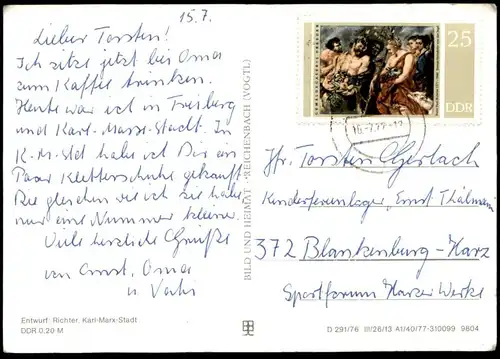 15.7.
Lieber Torsten!
Ich sitze jetzt bei Oma
zum Kaffee trinken.
Heute war ich in Freiberg
und Karl-Marx-Stadt. In
K.-M.-Std habe ich Dir ein
Paar Kletterschuhe gekauft.
Die gleichen wie ich sie habe
nur eine Nummer kleiner.
Viele herzliche Grüße
von Ernst, Oma
u. Vati
Entwurf: Richter, Karl-Marx-Stadt
DDR 0,20 M
BILD UND HEIMAT · REICHENBACH (VOGTL)
25
DDR
16.-7.77-12
Hr. Torsten Gerlach
Kinderferienlager „Ernst Thälmann
372 Blankenburg-Harz
Sportforum Harzer Werke
D 291/76 III/26/13 A1/40/77-310099 9804